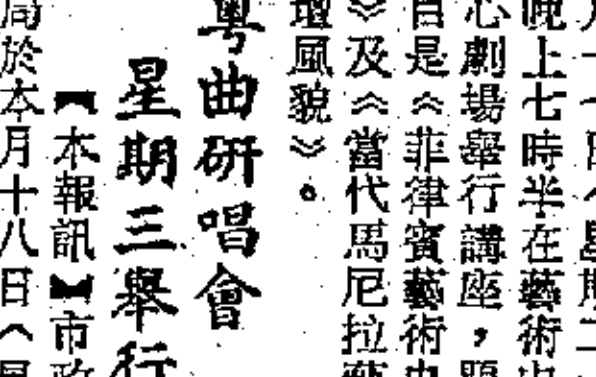 晚上七時半在藝術中
心劇場舉行講座，題
目是《菲律賓藝術中
》及《當代馬尼拉藝
壇風貌》。
粵曲研唱會
星期三舉行
【本報訊】市政
局於本月十八日（星